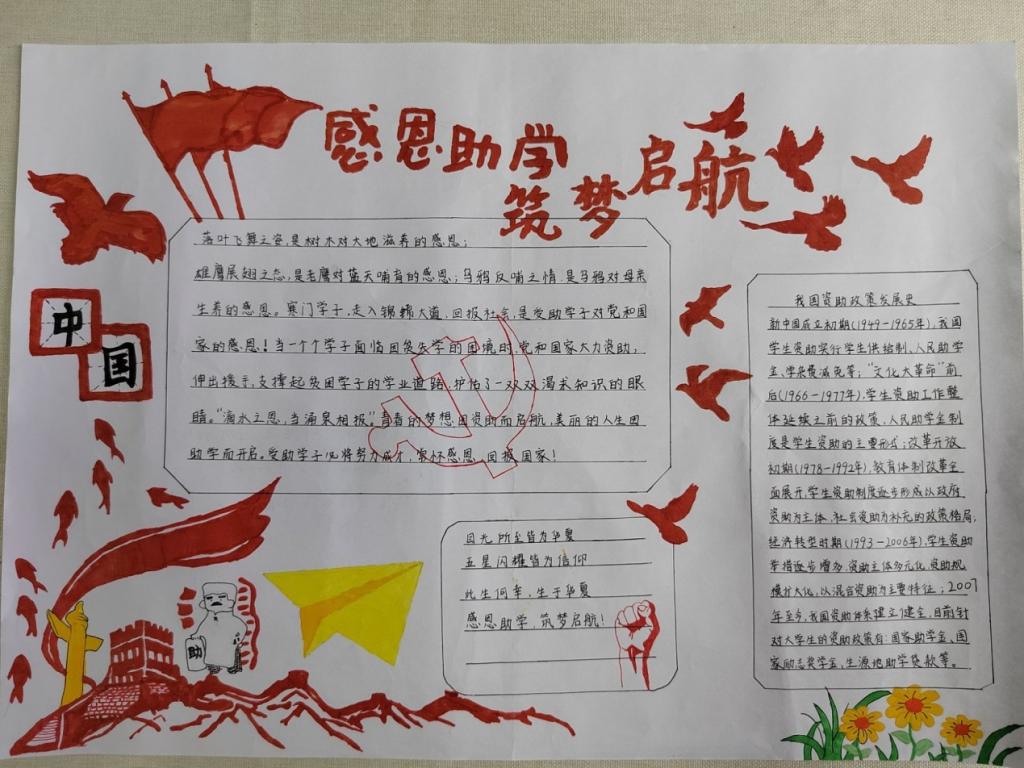 感恩助学
筑梦启航
落叶飞舞之姿,是树木对大地滋养的感恩;
雄鹰展翅之态,是老鹰对蓝天哺育的感恩;乌鸦反哺之情,是乌鸦对母亲
生养的感恩。寒门学子,走入锦绣大道,回报社会,是受助学子对党和国
家的感恩!当一个个学子面临因贫失学的困境时,党和国家大力资助,
伸出援手,支撑起贫困学子的学业道路,护佑了一双双渴求知识的眼
睛。“滴水之恩,当涌泉相报。”青春的梦想因资助而启航,美丽的人生因
助学而开启。受助学子必将努力成才,常怀感恩,回报国家!
中
国
我国资助政策发展史
新中国成立初期(1949-1965年),我国
学生资助实行学生供给制、人民助学
金、学杂费减免等;“文化大革命”前
后(1966-1977年),学生资助工作整
体延续之前的政策,人民助学金制
度是学生资助的主要形式;改革开放
初期(1978-1992年),教育体制改革全
面展开,学生资助制度逐步形成以政府
资助为主体、社会资助为补充的政策格局;
经济转型时期(1993-2006年),学生资助
举措逐步增多,资助主体多元化,资助规
模扩大化,以混合资助为主要特征;2007
年至今,我国资助体系建立健全,目前针
对大学生的资助政策有:国家助学金、国
家励志奖学金、生源地助学贷款等。
目光所至皆为华夏
五星闪耀皆为信仰
此生何幸,生于华夏
感恩助学,筑梦启航!
助